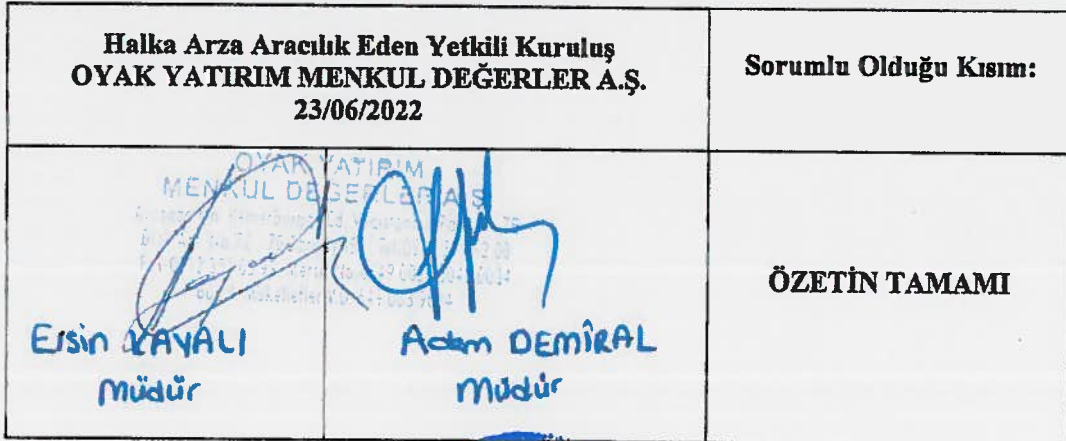 Halka Arza Aracılık Eden Yetkili Kuruluş
OYAK YATIRIM MENKUL DEĞERLER A.Ş.
23/06/2022
Sorumlu Olduğu Kısım:
OYAK YATIRIM
MENKUL DEĞERLER A.Ş.
Ersin KAYALI
Müdür
Adem DEMİRAL
Müdür
ÖZETİN TAMAMI